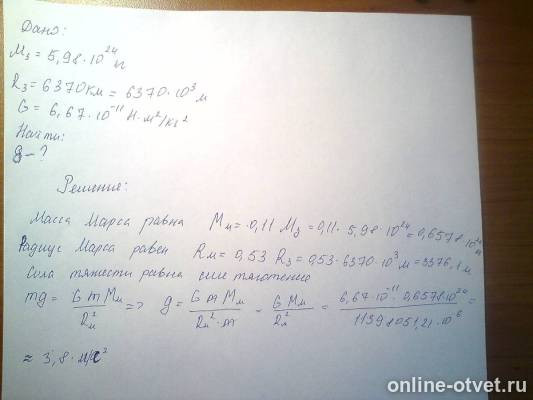 Дано:
Mз = 5,98·10²⁴ кг
Rз = 6370 км = 6370·10³ м
G = 6,67·10⁻¹¹ Н·м²/кг²
Найти:
g – ?
Решение:
Масса Марса равна Mм = 0,11 Mз = 0,11·5,98·10²⁴ = 0,6578·10²⁴ кг
Радиус Марса равен Rм = 0,53 Rз = 0,53·6370·10³ м = 3376,1 м
Сила тяжести равна силе тяготению
mg = G m Mм / Rм² => g = G m Mм / Rм²·m = G Mм / Rм² = 6,67·10⁻¹¹·0,6578·10²⁴ / 11398051,21·10⁶ =
≈ 3,8 м/с²
online-otvet.ru